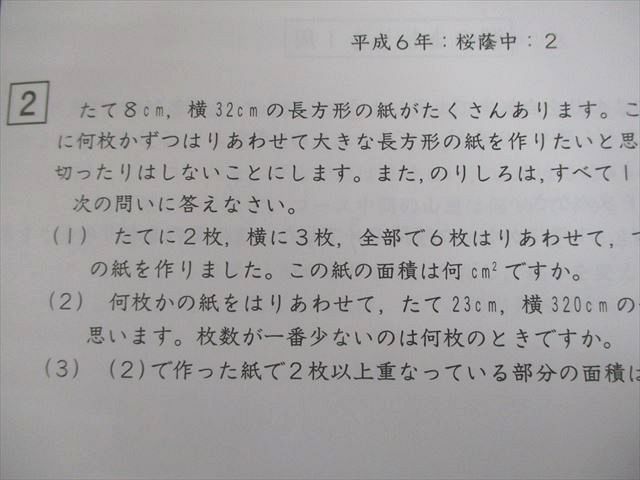 平成6年：桜蔭中：2
2 たて8cm，横32cmの長方形の紙がたくさんあります。こ
に何枚かずつはりあわせて大きな長方形の紙を作りたいと思
切ったりはしないことにします。また,のりしろは,すべて1
次の問いに答えなさい。
(1) たてに2枚，横に3枚，全部で6枚はりあわせて，
の紙を作りました。この紙の面積は何cm²ですか。
(2) 何枚かの紙をはりあわせて，たて23cm，横320cmの
思います。枚数が一番少ないのは何枚のときですか。
(3) (2)で作った紙で2枚以上重なっている部分の面積は